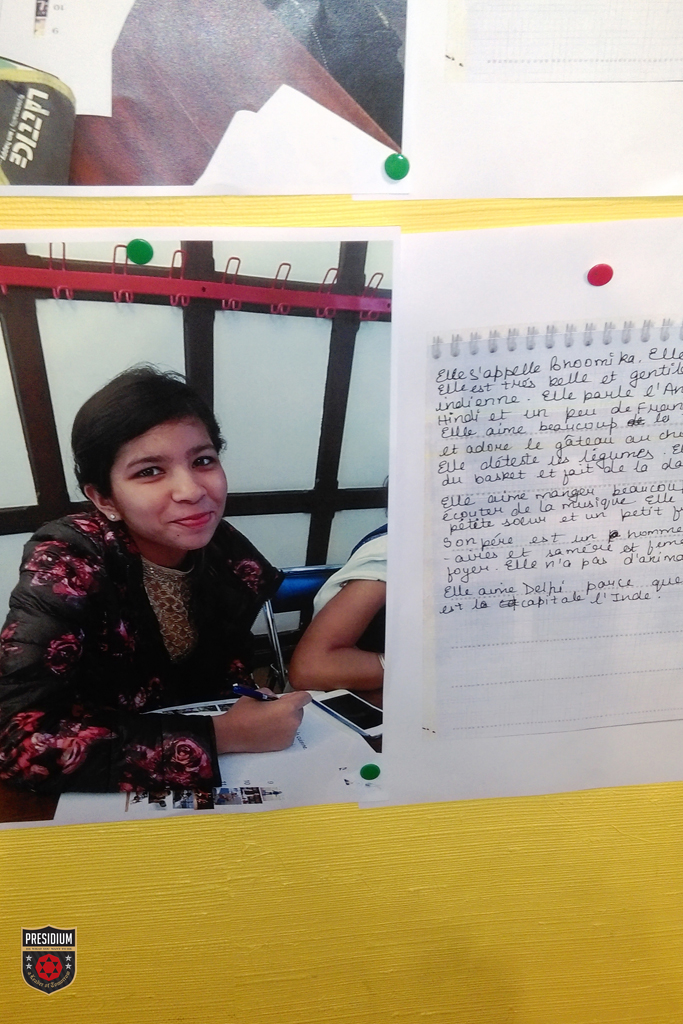 Elle s'appelle Bhoomika. Elle
Elle est très belle et gentil
indienne. Elle parle l'An
Hindi et un peu de Fran
Elle aime beaucoup la
et adore le gâteau au cho
Elle déteste les légumes. E
du basket et fait de la da
Elle aime manger beaucou
écouter de la musique. Elle
petite soeur et un petit fr
Son père est un homme
-aires et sa mère et fem
foyer. Elle n'a pas d'anima
Elle aime Delhi parce que
est la capitale l'Inde.
PRESIDIUM